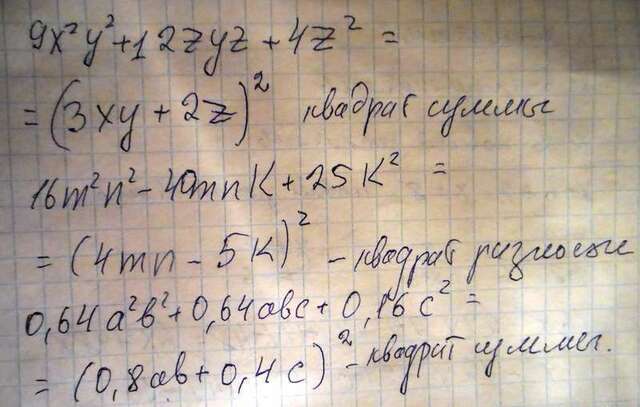 9x²y²+12zyz+4z² =
= (3xy+2z)² квадрат суммы
16m²n²-40mnk+25k² =
= (4mn-5k)² - квадрат разности
0,64a²b²+0,64abc+0,16c² =
= (0,8ab+0,4c)² - квадрат суммы.